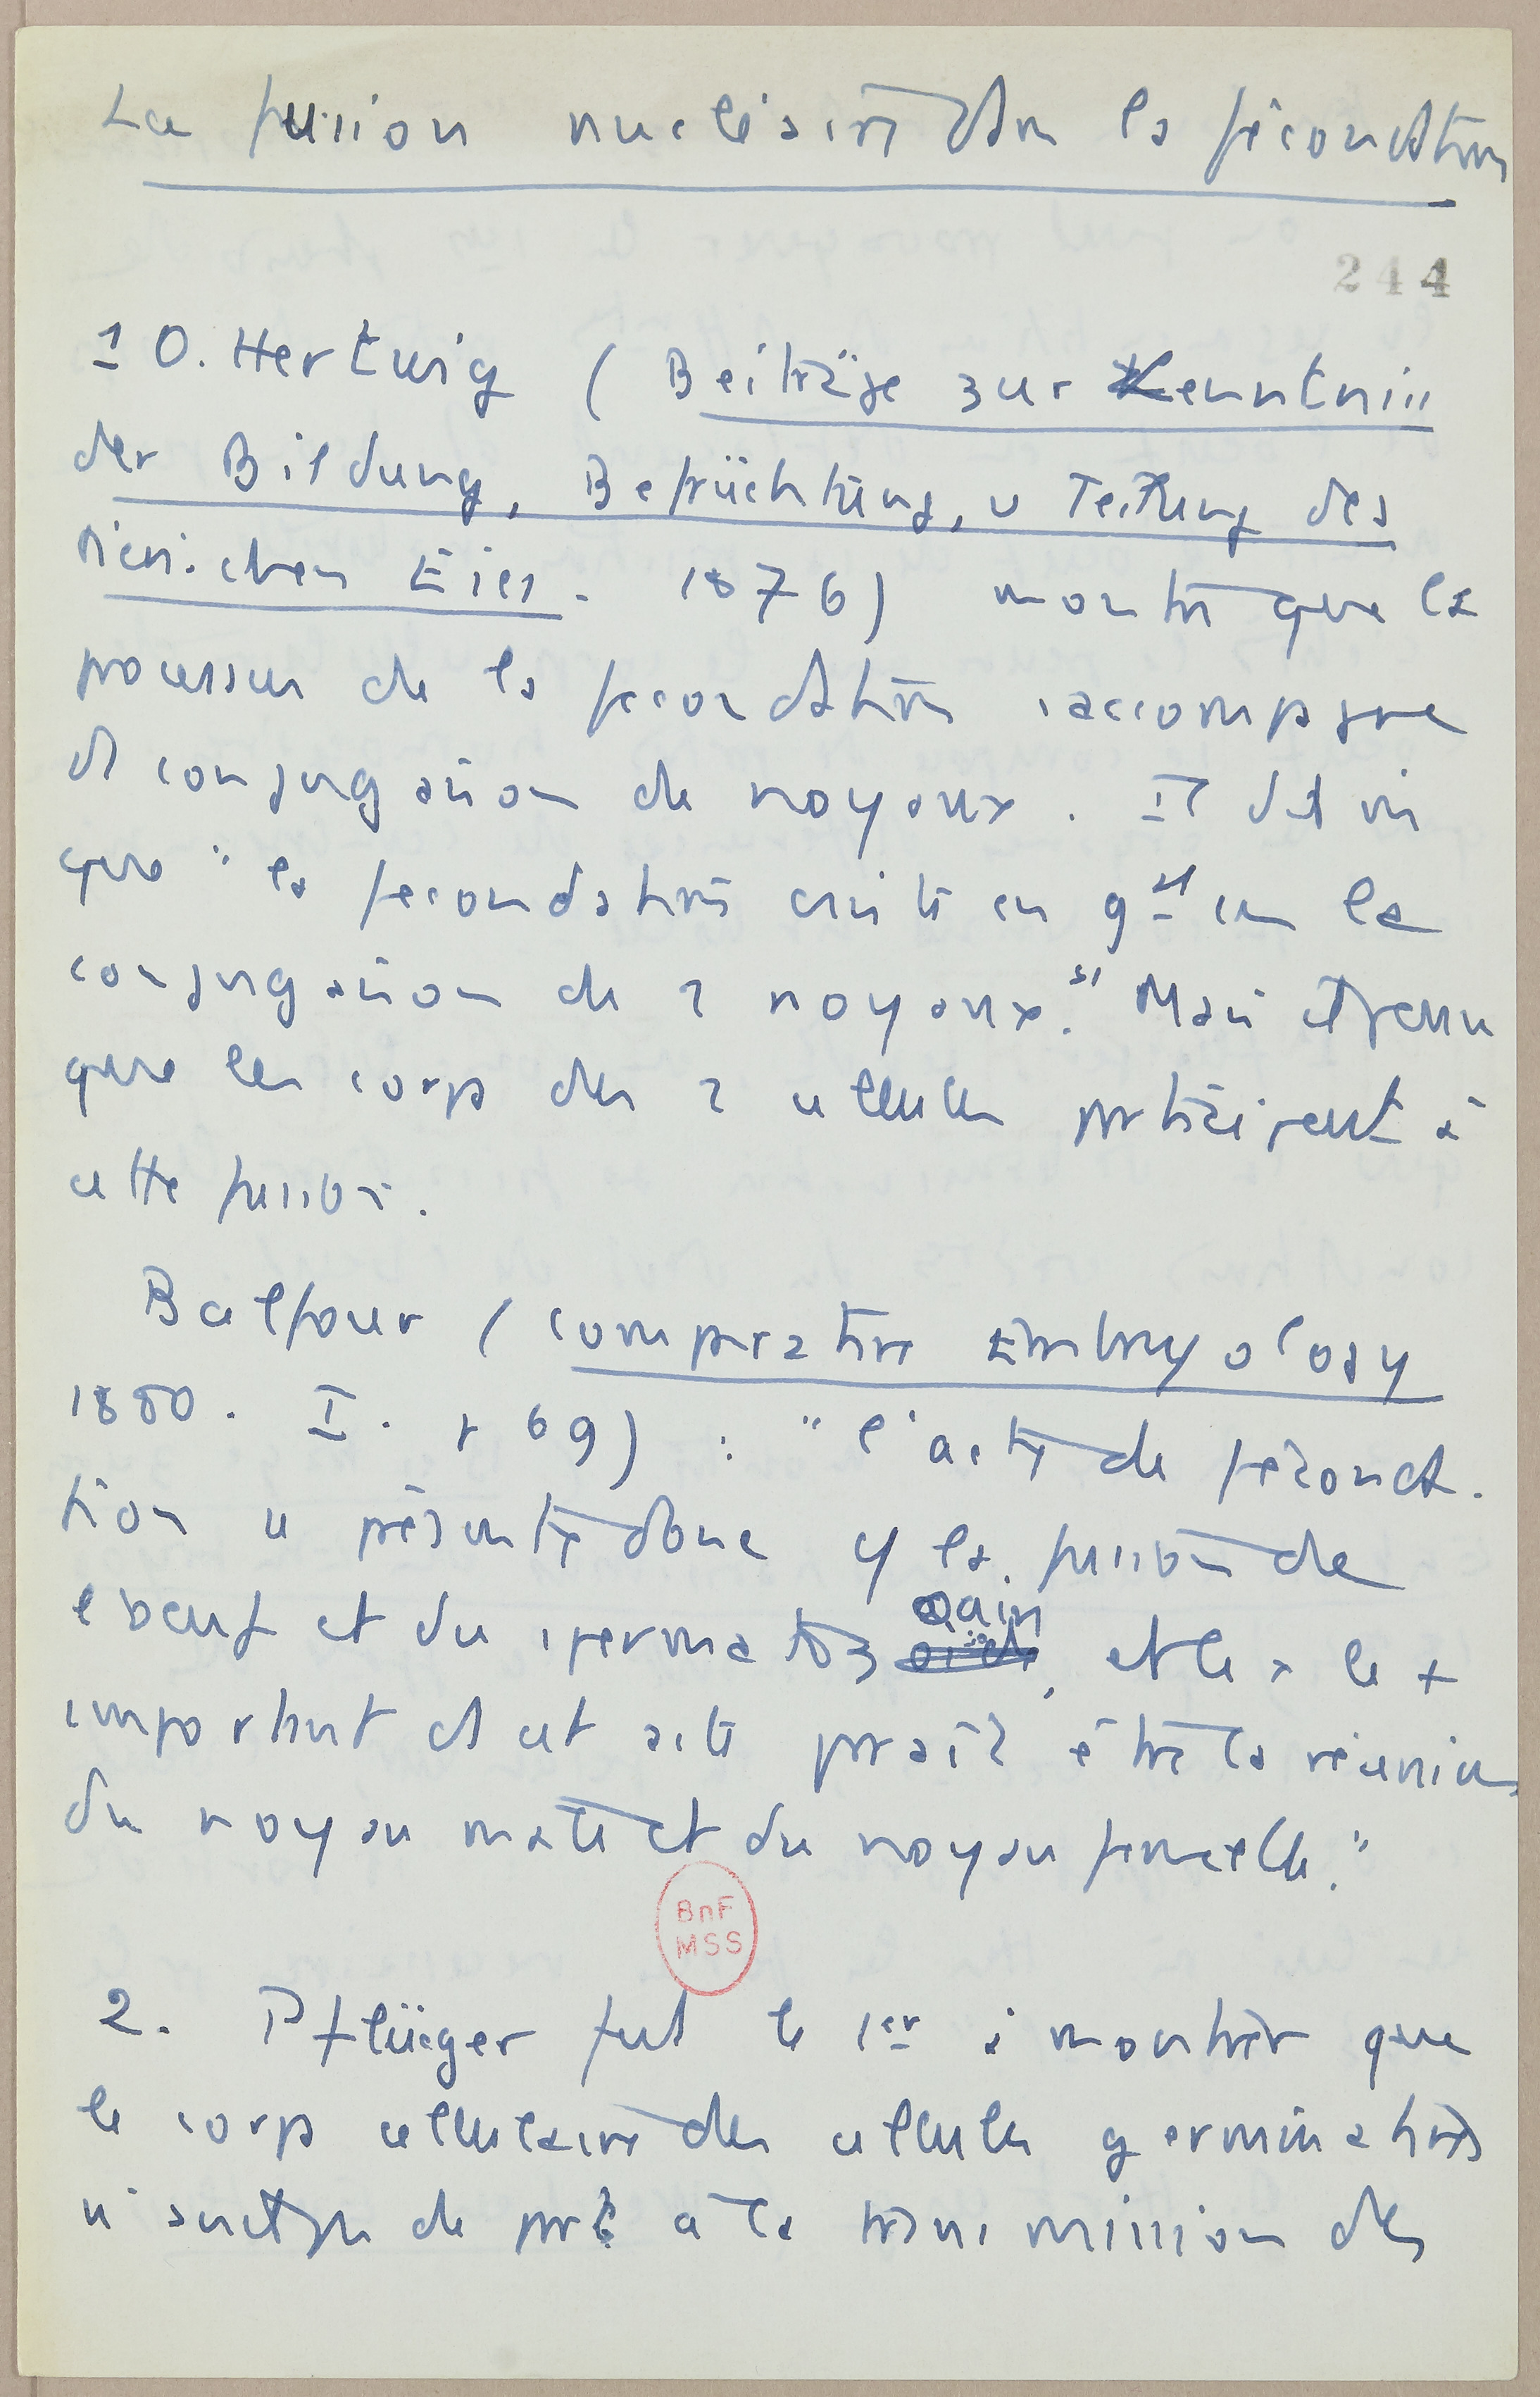 La fusion nucléaire dans la fécondation
244
1 O. Hertwig (Beiträge zur Kenntniss
der Bildung, Befrüchtung, u Teilung des
tierischen Eies. 1876) montre que le
processus de la fécondation s'accompagne
de conjugaison de noyaux. Il écrit
que "la fécondation consiste en gal en la
conjugaison de 2 noyaux." Mais
que les corps des 2 cellules participent à
cette fusion.
Balfour (Comparative Embryology
1880. I. p 69) : "l'acte de féconda-
tion se présente donc c/ la fusion de
l'oeuf et du spermatozoain, et le le +
important de cet acte paraît être la réunion
du noyau mâle et du noyau femelle."
BnF
MSS
2. Pflüger fut le 1er à montrer que
le corps cellulaire des cellules germinatives
n' de part à la transmission des